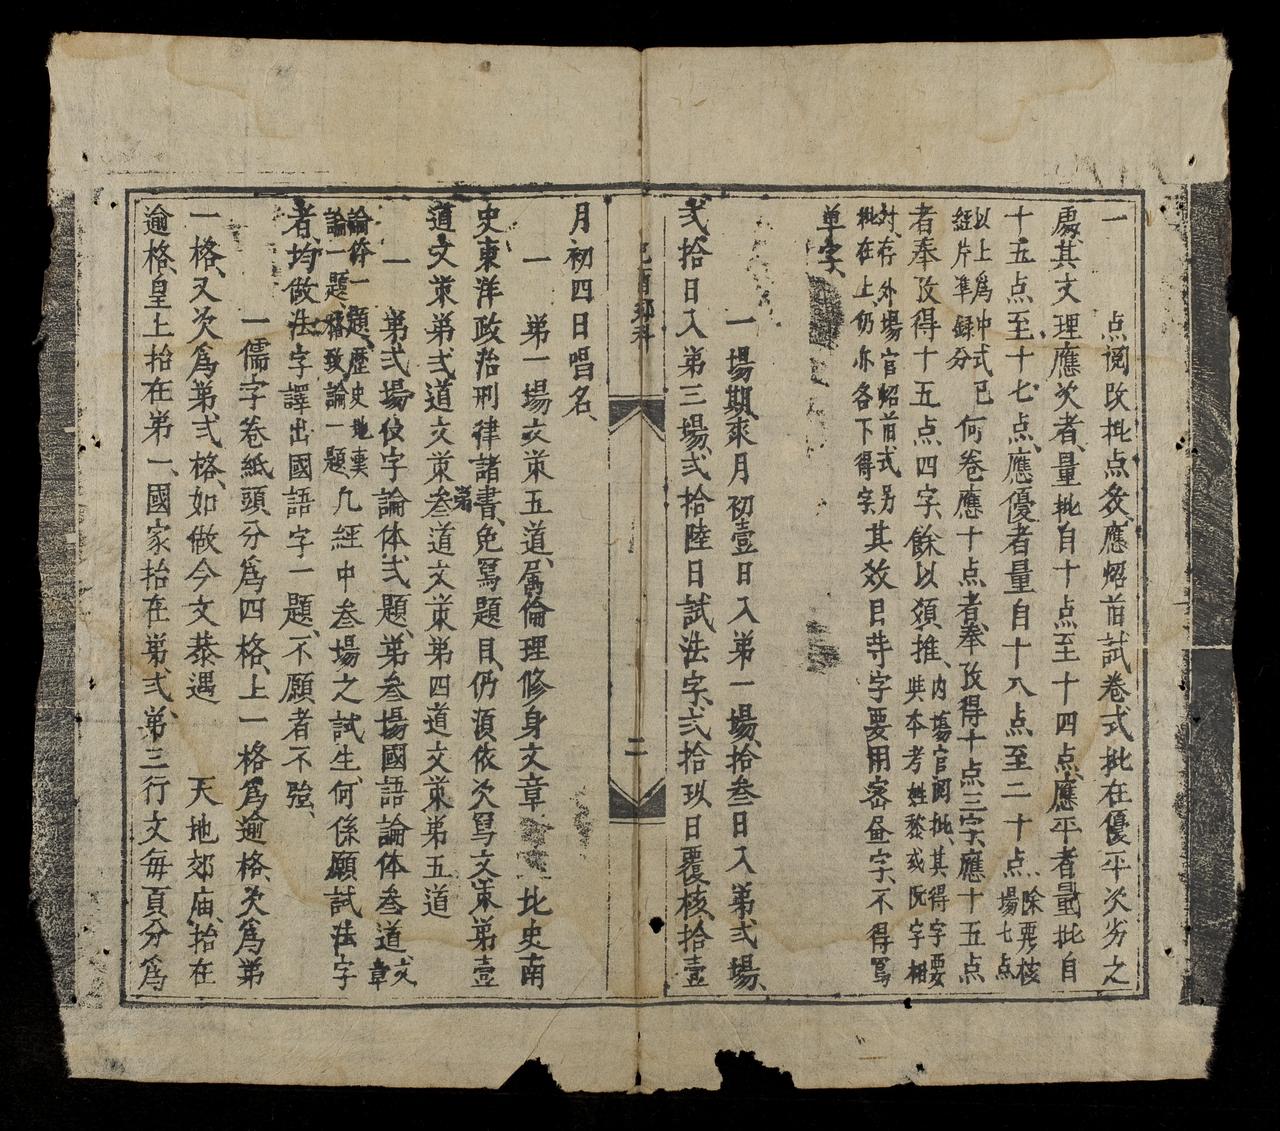 一 点閱改批点灸應炤苜試卷式批在優平次劣之
處其文理應次者量批自十点至十四点應平者量批自
十五点至十七点應優者量自十八点至二十点除要核場七点
以上爲中式已經片準錄分何卷應十点者奉攷得十点三字應十五点
者奉攷得十五点四字餘以類推內塲官閱批其得字要與本考姓黎或阮字相
対存外場官炤苜式另批在上仍亦各下得字其效日䓁字要用密昼字不得寫
单字
一場期來月初壹日入第一場拾叁日入第弍場
弍拾日入第三場弍拾陸日試法字弍拾玖日覆核拾壹
鄉科
二
月初四日唱名
一 第一場文策五道属倫理修身文章北史南
史東洋政治刑律諸書免寫題目仍須依次寫文策第壹
道文策第弍道文策第叁道文策第四道文策第五道
一 第弍場使字論体弍題第叁場國語論体叁道文章
論体一題歷史地輿論一題格致論一題凢經中叁場之試生何係願試法字
者均做法字譯出國語字一題不願者不強
一儒字卷紙頭分爲四格上一格爲逾格次爲第
一格又次爲第弍格如做今文恭遇 天地郊庙抬在
逾格皇上抬在第一國家抬在第弍第三行文每頁分爲